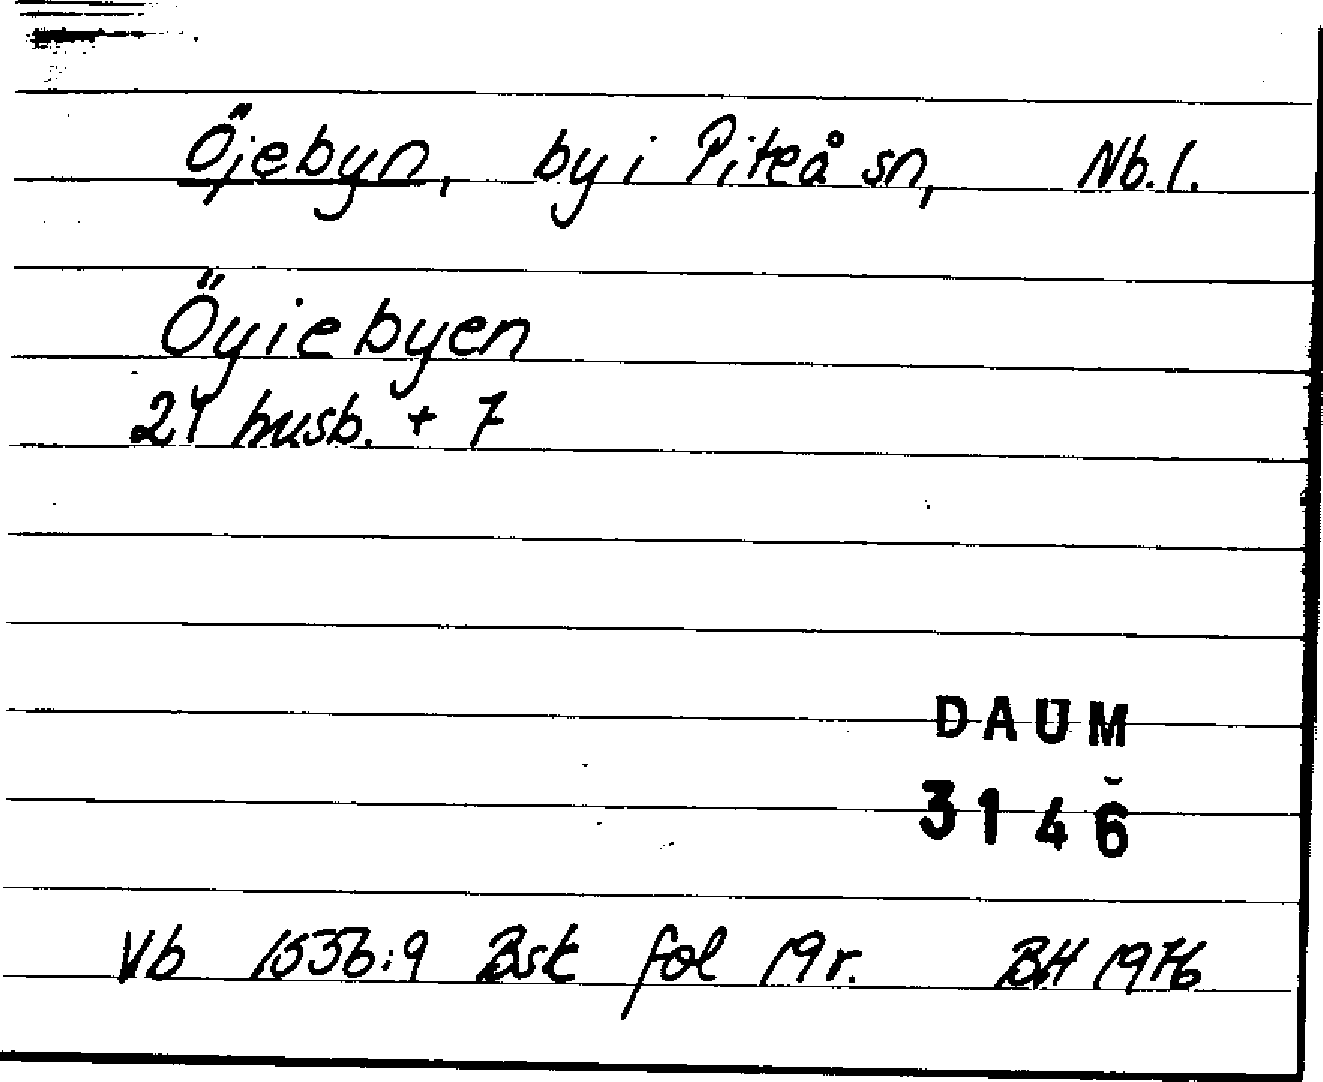 Öjebyn, by i Piteå sn, Nb. l.
Öyiebyen
24 husb. + 7
DAUM
3146
Vb 1553b:9 Bsk fol 19 r. BH 1976